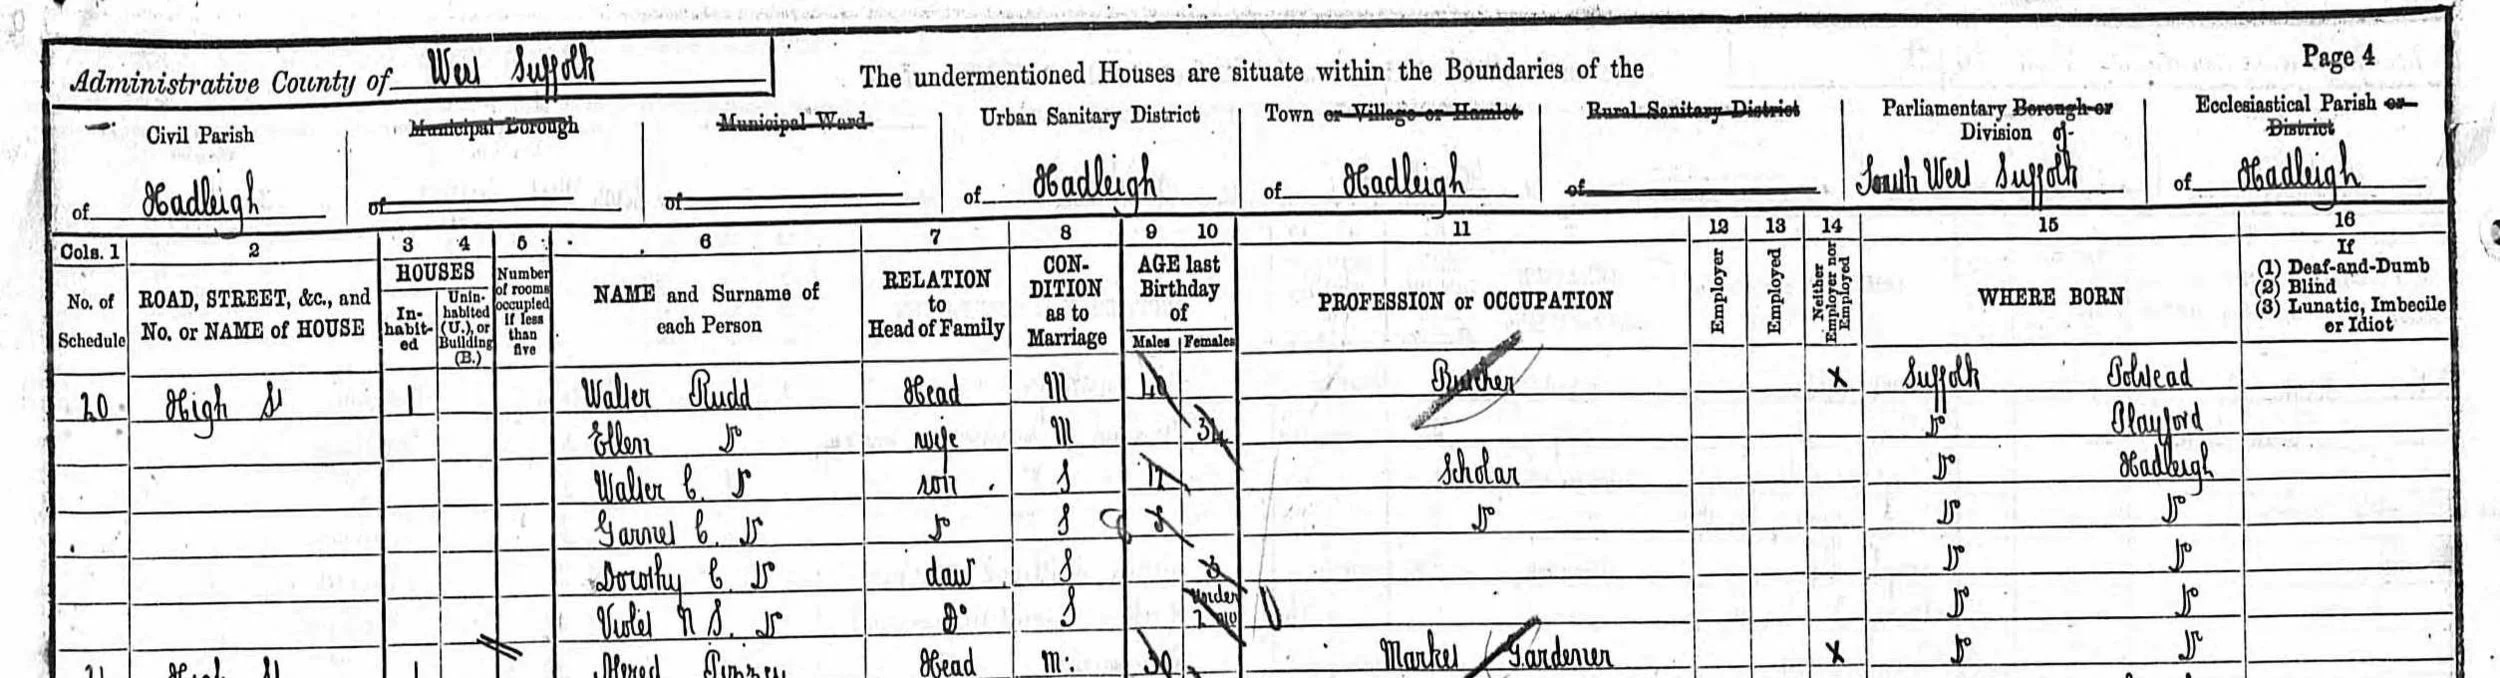 Page 4
Administrative County of West Suffolk
The undermentioned Houses are situate within the Boundaries of the
Civil Parish
of Hadleigh
Municipal Borough
of
Municipal Ward
of
Urban Sanitary District
of Hadleigh
Town or Village or Hamlet
of Hadleigh
Rural Sanitary District
of
Parliamentary Borough or
Division of
South West Suffolk
Ecclesiastical Parish or
District
of Hadleigh
Cols. 1 2 3 4 5 6 7 8 9 10 11 12 13 14 15 16
No. of
Schedule
ROAD, STREET, &c., and
No. or NAME of HOUSE
HOUSES
In-
habit-
ed
Unin-
habited
(U.), or
Building
(B.)
Number
of rooms
occupied
if less
than
five
NAME and Surname of
each Person
RELATION
to
Head of Family
CON-
DITION
as to
Marriage
AGE last
Birthday
of
Males Females
PROFESSION or OCCUPATION
Employer
Employed
Neither
Employer nor
Employed
WHERE BORN
If
(1) Deaf-and-Dumb
(2) Blind
(3) Lunatic, Imbecile
or Idiot
20 High St 1 Walter Rudd Head M 40 Butcher X Suffolk Polstead
Ellen Do wife M 34 Do Playford
Walter C. Do son S 12 Scholar Do Hadleigh
Garnet C. Do Do S Do Do Do
Dorothy C. Do daur S 3 Do Do
Violet N S. Do Do S Under 2 mo Do Do
High St 1 Head M. 30 Market Gardener X Do Do